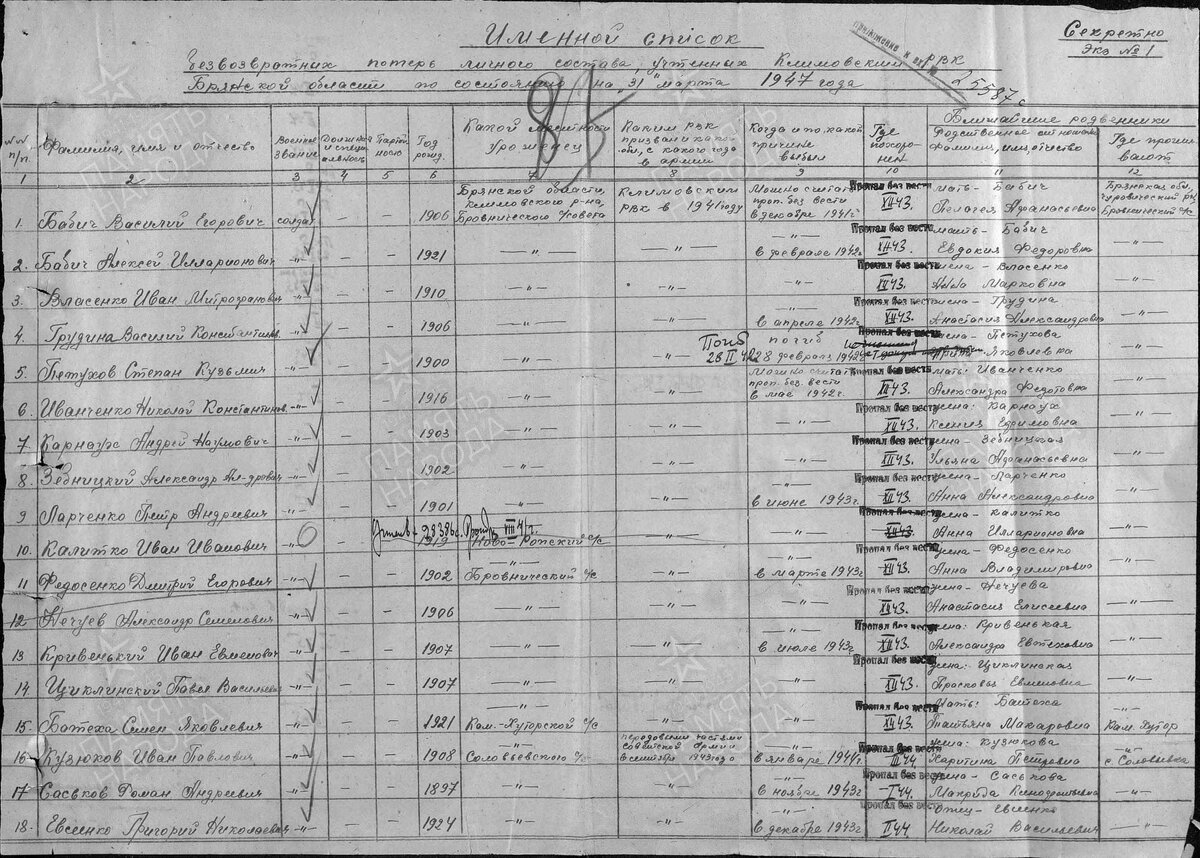 Именной список
Секретно
Экз № 1
безвозвратных потерь личного состава, учтенных Климовский РВК
Брянской области по состоянию на "31" марта 1947 года
25587с
№№ п/п.
Фамилия, имя и отчество
Военное звание
Год рожд.
Какой местности уроженец
Каким РВК призван и какой обл, с какого года в армии
Когда и по какой причине выбыл
Где похоронен
Ближайшие родвеники
Родственное отношение Фамилия, имя, отчество
Где проживают
1 2 3 4 5 6 7 8 9 10 11 12
1. Бабич Василий Егорович солдат — — 1906 Брянской области, Климовского р-на, Бровнического с/совета Климовским РВК в 1941 году Можно считать проп. без вести в декабре 1941 г. Пропал без вести XII 43. мать - Бабич Пелагея Афанасьевна
2. Бабич Алексей Илларионович -"- — — 1921 —"— —"— в феврале 1942 г. Пропал без вести XII 43. мать - Бабич Евдокия Федоровна —"—
3. Власенко Иван Митрофанович -"- — — 1910 —"— —"— —"— Пропал без вести XII 43. жена - Власенко Анна Марковна —"—
4. Грудина Василий Константинов. -"- — — 1906 —"— —"— в апреле 1942 г. Пропал без вести XII 43. жена - Грудина Анастасия Александровна —"—
5. Петухов Степан Кузьмич -"- — — 1900 —"— —"— Погиб 28 II 42 погиб 28 февраля 1942 Пропал без вести жена - Петухова Яковлевка —"—
6. Иванченко Николай Константинов. -"- — — 1916 —"— —"— Можно считать проп. без вести в мае 1942 г. Пропал без вести XII 43. мать: Иванченко Александра Федотовна —"—
7. Карнаух Андрей Наумович -"- — — 1903 —"— —"— —"— Пропал без вести XII 43. жена: Карнаух Ксения Ефимовна —"—
8. Зебницкий Александр Ал-дрович -"- — — 1902 —"— —"— —"— Пропал без вести XII 43. жена - Зебницкая Ульяна Афанасьевна —"—
9 Ларченко Петр Андреевич -"- — — 1901 —"— —"— в июне 1943 г Пропал без вести XII 43. жена - Ларченко Анна Александровна —"—
10. Калитко Иван Иванович -"- 28386с. VIII 41г. 1919 Ново-Ропский с/с —"— —"— Пропал без вести XII 43. жена - Калитко Анна Илларионовна —"—
11 Федосенко Дмитрий Егорович -"- — — 1902 Бровнический с/с —"— в марте 1943 г Пропал без вести XII 43. жена - Федосенко Анна Владимировна —"—
12 Нечуев Александр Семенович -"- — — 1906 —"— —"— —"— Пропал без вести XII 43. жена - Нечуева Анастасия Елисеевна —"—
13 Кривенький Иван Евменович -"- — — 1907 —"— —"— в июле 1943 г Пропал без вести XII 43. жена: Кривенькая Александра Евтеховна —"—
14 Циклинский Павел Васильевич -"- — — 1907 —"— —"— —"— Пропал без вести XII 43. жена: Циклинская Прасковья Евменовна —"—
15 Батеха Семен Яковлевич -"- — — 1921 Кам.-Хуторской с/с —"— —"— Пропал без вести XII 43. Мать: Батеха Татьяна Макаровна Кам. Хутор
16 Кузюков Иван Павлович -"- — — 1908 Соловьевского с/с передовыми частями Советской Армии в сентябре 1943 года в январе 1944 г. Пропал без вести III 44. жена: Кузюкова Харитина Петровна с. Соловьевка
17 Саськов Роман Андреевич -"- — — 1897 —"— —"— в ноябре 1943 г Пропал без вести I 44. жена - Саськова —"—
18. Евсеенко Григорий Николаевич -"- — — 1924 —"— —"— в декабре 1943 г Пропал без вести II 44 Отец - Евсеенко Николай Васильевич —"—
ПАМЯТЬ НАРОДА